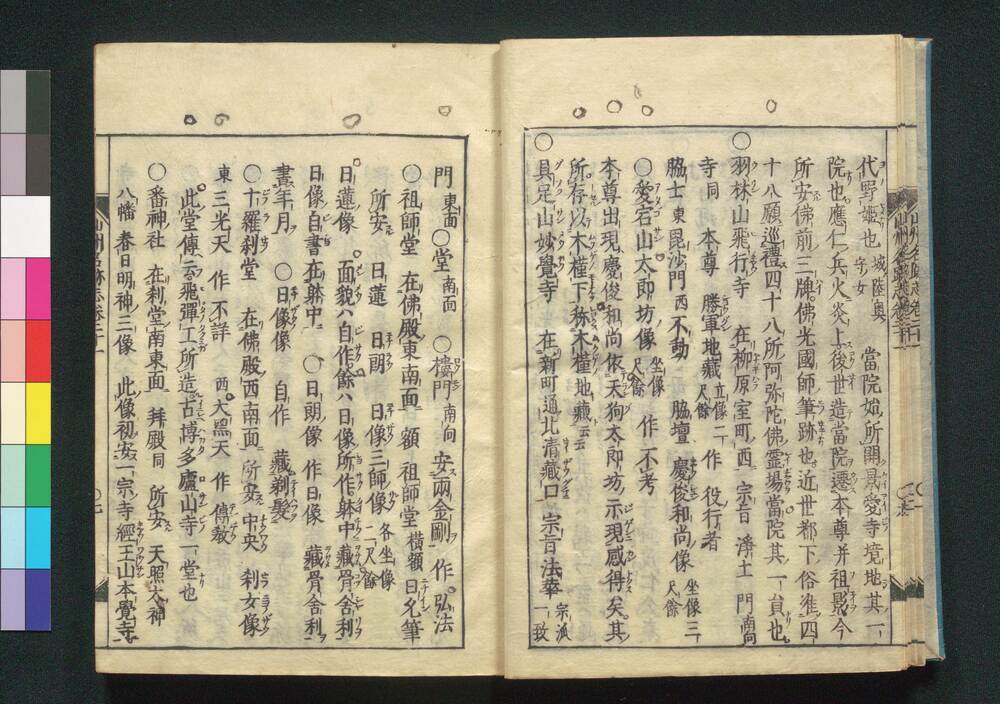 代野姫也 城陸奥守女 當院始所開資愛寺境地其一
院也應仁兵火炎上後世造當院遷本尊并祖影今
所安佛前三牌佛光國師筆跡也近世都下俗准四
十八願巡禮四十八所阿弥陀佛霊場當院其一員也
○羽林山飛行寺 在柳原室町西 宗旨濟土 門南向
寺同 本尊 勝軍地藏 立像二尺餘 作 役行者
脇士 東毘沙門 西不動 脇壇 慶俊和尚像 坐像三尺餘
○愛宕山太郎坊像 坐像尺餘 作不考
本尊出現慶俊和尚依天狗太郎坊示現感得矣其
所存以木槿下称木槿地藏云云
○具足山妙覺寺 在新町通北清藏口 宗旨法華 宗派一致
門 東面 ○堂 南面 ○樓門 南向 安兩金剛 作弘法
○祖師堂 在佛殿東南面 額 祖師堂 横額 日允筆
所安 日蓮 日朗 日像三師像 各坐像一尺餘
日蓮像 面貌ハ自作餘ハ日像所作躰中藏骨舍利
日像自書在躰中 ○日朗像 作日像 藏骨舍利
書年月 ○日像像 自作 藏剃髪
○十羅刹堂 在佛殿西南面 所安 中央 刹女像
東 三光天 作不詳 西 大黒天 作 傳教
此堂傳云飛彈工所造古博多廬山寺一堂也
○番神社 在刹堂南東面 拜殿同 所安 天照大神
八幡 春日明神三像 此像初安一宗寺經王山本覺寺